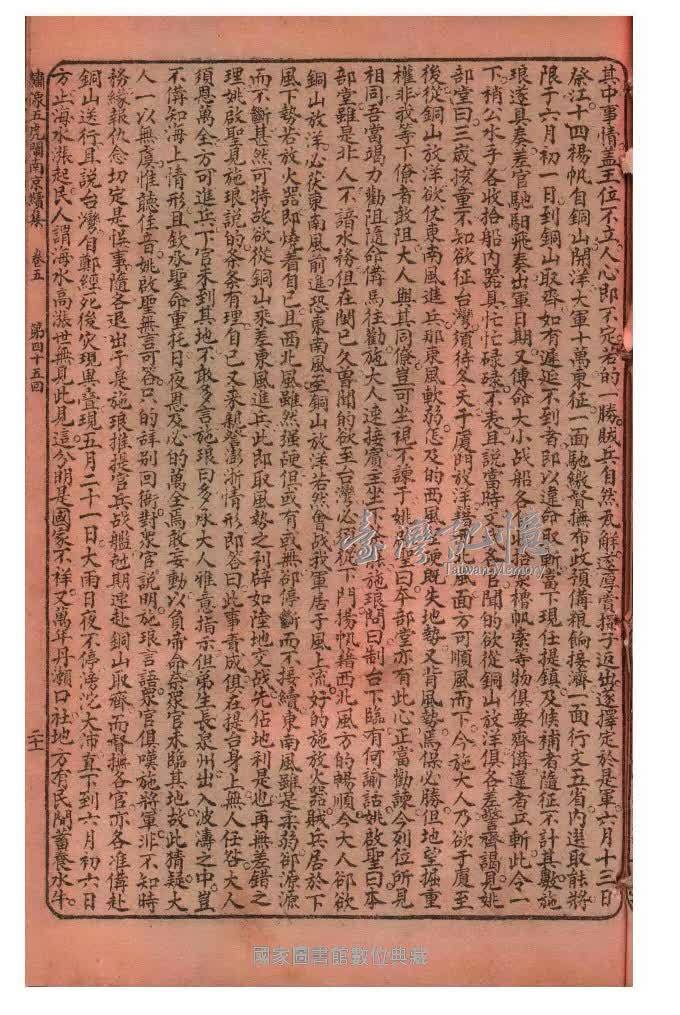 其中事情盖王位不立人心即不定若的一勝賊兵自然瓦解遂厚賞探子近出遂擇定於是軍六月十三日
祭江十四揚帆自銅山開洋大軍十萬東征一面馳繳督撫布政預備粮餉接濟一面行文五省內選取能將
限于六月初一日到銅山取齊如有遲延不到者即以違命取斬當下現任提鎮及候補者隨征不計其數施
琅遂具奏差官馳馹飛奏出軍日期又傳命大小战船各 桅槳槽帆索等物俱要齊備違者立斬此令一
下稍公水手各收拾船內器具忙忙碌碌不表且說當時文武各官聞的欲從銅山放洋俱各差驚齊謁見姚
部堂曰三歲孩童不知欲征台灣須待冬天于廈門放洋藉 風面方可順風而下今施大人乃欲于廈至
後從銅山放洋欲仗東南風進兵那東風軟弱怎及的西風在硬既失地勢又背風勢焉保必勝但地堂掘重
權非我等下僚者敢阻大人與其同僚豈可坐視不諫于姚啟聖曰本部堂亦有此心正當勸諫今列位所見
相同吾當竭力勸阻隨命備馬往勸施大人達接賓主坐下 琅問曰制台下臨有何諭詁姚啟聖曰本
部堂雖是北人不諳水務但在閩已久曾聞的欲至台灣必 從下門揚帆藉西北風方的暢順今大人邰欲
銅山放洋必依東南風前進恐東南風 銅山放洋若然會战我軍居于風上流好的施放火器賊兵居於下
風下勢若放火器即燒着自已且西北風雖然强硬但或有或無邰停斷而不接續東南風雖是柔弱邰源源
而不斷甚然可特故欲從銅山來差東風進兵此即取風勢之利辟如陸地交战先佔地利是也再無差錯之
理姚啟聖見施琅說的条条有理自已又未親歷澎浙情形即答曰此事責成俱在提台身上無人任咎大人
須思萬全方可進兵下官未到其地不敢多言施琅曰多承大人雅意指示但弟生長泉州出入波濤之中豈
不備知海上情形且欽承聖命重托日夜思及必的萬全焉敢妄動以負帝命奈眾官未臨其地故此猜疑大
人一以無虞惟聽佳音姚啟聖無言可答只的詳别回衙對眾官說明施琅言語眾官俱嘆施將軍非不知時
務緣報仇念切定是悞事隨各退出于是施琅推提官兵战艦尅期速赴銅山取齊而督撫各官亦各准備赴
銅山送行且說台灣自鄭經死後灾現異疊現五月二十一日大雨日夜不停滂沱大沛直下到六月初六日
方止海水漲起民人謂海水高漲世無見此見這分明是國家不祥又萬年丹瀨口社地方有民閒蓄養水牛
繡像五虎鬧南京續集 卷五 第四十五回 二十
臺灣記憶
Taiwan Memory
國家圖書館數位典藏